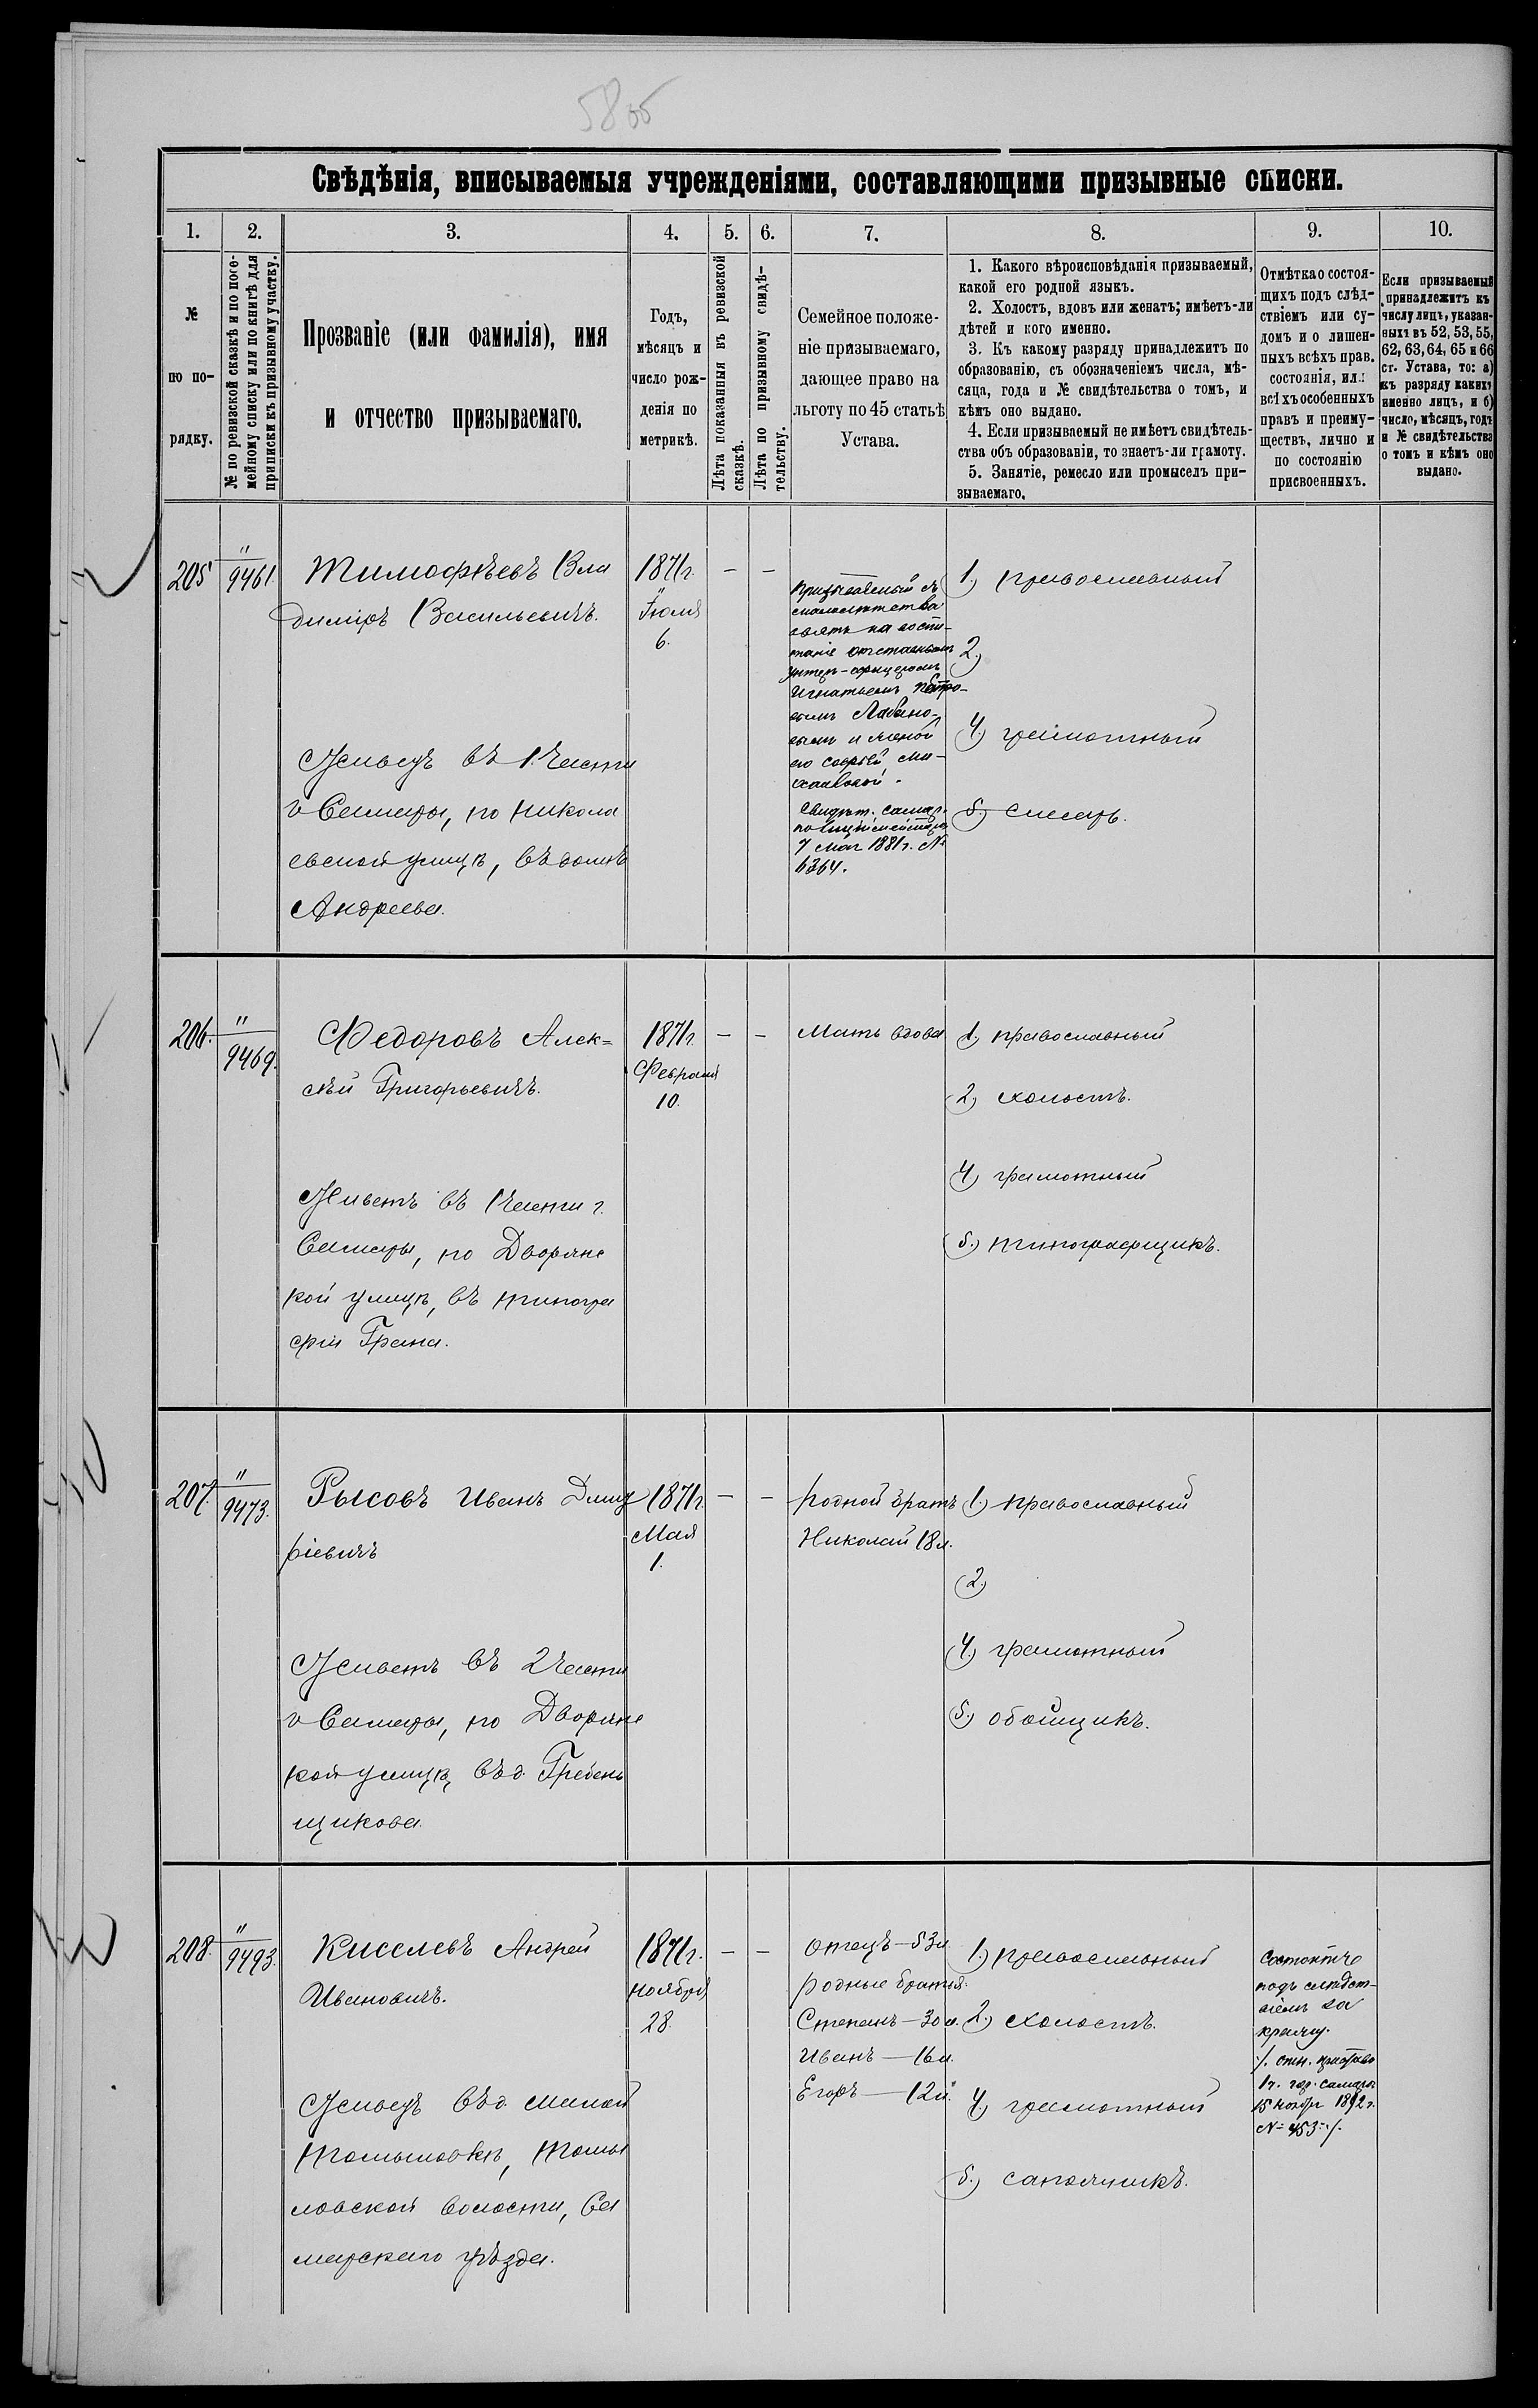 58об
Свѣдѣнія, вписываемыя учрежденіями, составляющими призывные списки.
1. 2. 3. 4. 5. 6. 7. 8. 9. 10.
№
по по-
рядку.
№ по ревизской сказкѣ и по посе-
мейному списку или по книгѣ для
приписки къ призывному участку.
Прозваніе (или фамилія), имя
и отчество призываемаго.
Годъ,
мѣсяцъ и
число рож-
денія по
метрикѣ.
Лѣта показанныя въ ревизской
сказкѣ.
Лѣта по призывному свидѣ-
тельству.
Семейное положе-
ніе призываемаго,
дающее право на
льготу по 45 статьѣ
Устава.
1. Какого вѣроисповѣданія призываемый,
какой его родной языкъ.
2. Холостъ, вдовъ или женатъ; имѣетъ-ли
дѣтей и кого именно.
3. Къ какому разряду принадлежитъ по
образованію, съ обозначеніемъ числа, мѣ-
сяца, года и № свидѣтельства о томъ, и
кѣмъ оно выдано.
4. Если призываемый не имѣетъ свидѣтель-
ства объ образованіи, то знаетъ-ли грамоту.
5. Занятіе, ремесло или промыселъ при-
зываемаго.
Отмѣтка о состоя-
щихъ подъ слѣд-
ствіемъ или су-
домъ и о лишен-
ныхъ всѣхъ прав.
состоянія, или
всѣхъ особенныхъ
правъ и преиму-
ществъ, лично и
по состоянію
присвоенныхъ.
Если призываемый
принадлежитъ къ
числу лицъ, указан-
ныхъ въ 52, 53, 55,
62, 63, 64, 65 и 66
ст. Устава, то: а)
къ разряду какихъ
именно лицъ, и б)
число, мѣсяцъ, годъ
и № свидѣтельства
о томъ и кѣмъ оно
выдано.
205
"
9461.
Тимофѣевъ Вла
диміръ Васильевичъ.
Живетъ въ 1 Части
г Самары, по Никола
евской улицѣ, въ домѣ
Андреева.
1871г.
Іюля
6.
— —
Призываемый съ
малолѣтства
взятъ на воспи-
таніе отставнымъ
унтеръ-офицеромъ
Игнатьемъ Петро-
вымъ
и женой
его Софьей Ми-
хайловой.
Свидѣт. Самар.
полицiймейстера
7 мая 1881 г. №
6364.
1.) православный
2.)
4.) грамотный
5.) слесарь.
206.
"
9469.
Федоровъ Алек=
сѣй Григорьевичъ.
Живетъ въ 1 части г.
Самары, по Дворянс
кой улицѣ, въ типогра
фіи Грана.
1871г
Февраля
10.
— —
Мать вдова
1.) православный
2.) холостъ.
4.) грамотный
5.) типографщикъ.
207.
"
9473.
Рысовъ Иванъ Дмит
ріевичъ
Живетъ въ 2 части
г Самары, по Дворянс
кой улицѣ, въ д. Гребень
щикова.
1871г.
Мая
1.
— —
родной братъ
Николай 18л.
1.) православный
2.)
4.) грамотный
5.) обойщикъ.
208.
"
9493.
Киселевъ Андрей
Ивановичъ.
Живетъ въ д. малой
Томыловкѣ, Томы
ловской волости, Са
марскаго уѣзда.
1871г.
ноября
28.
— —
отецъ — 53л
родные братья:
Степанъ — 30л.
Иванъ — 16л.
Егоръ — 12л.
1.) православный
2.) холостъ.
4.) грамотный
5.) сапожникъ.
Состоитъ
подъ слѣдст-
віемъ за
кражу.
/. отн. пристава
1ч. гор. Самары
15 ноябр 1892 г.
№ 453 ·/.